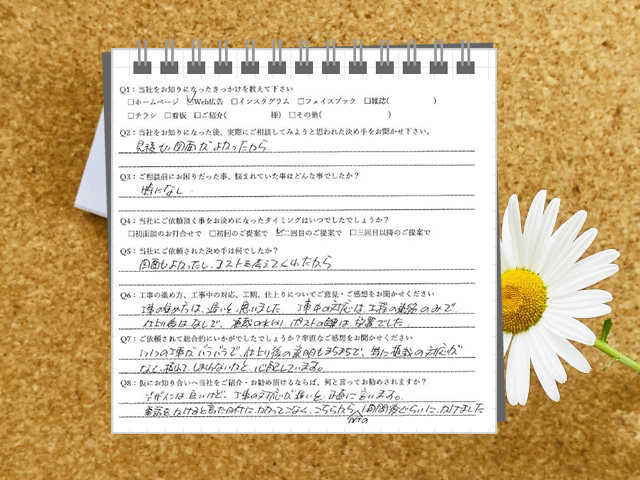 Q1：当社をお知りになったきっかけを教えて下さい
□ホームページ ☑Web広告 □インスタグラム □フェイスブック □雑誌( )
□チラシ □看板 □ご紹介( 様) □その他( )
Q2：当社をお知りになった後、実際にご相談してみようと思われた決め手をお聞かせ下さい。
見積もり図面がよかったから
Q3：ご相談前にお困りだった事、悩まれていた事はどんな事でしたか？
特になし.
Q4：当社にご依頼頂く事をお決めになったタイミングはいつでしたでしょうか？
□初面談のお打合せで □初回のご提案で ☑二回目のご提案で □三回目以降のご提案で
Q5：当社にご依頼された決め手は何でしたか？
図面もよかったし、コストも考えてくれたから
Q6：工事の進め方、工事中の対応、工期、仕上りについてご意見・ご感想をお聞かせください
工事の進め方は、遅いと思いました 工事中の対応は工程の連絡のみで、
仕上り後はなしで、 ポストの鍵は放置でした.
Q7：ご依頼されて総合的にいかがでしたでしょうか？率直なご感想をお聞かせください
仕上り後の説明もまちまちで、特に 対応が
なし、 心配しています。
Q8：仮にお知り合いへ当社をご紹介・お勧め頂けるならば、何と言ってお勧めされますか？
デザインは良いけど、工事の対応が遅いと正直に言います。
電話をかけると言た日付に、かかってこなく、こちらから1週間後ぐらいに、かけました